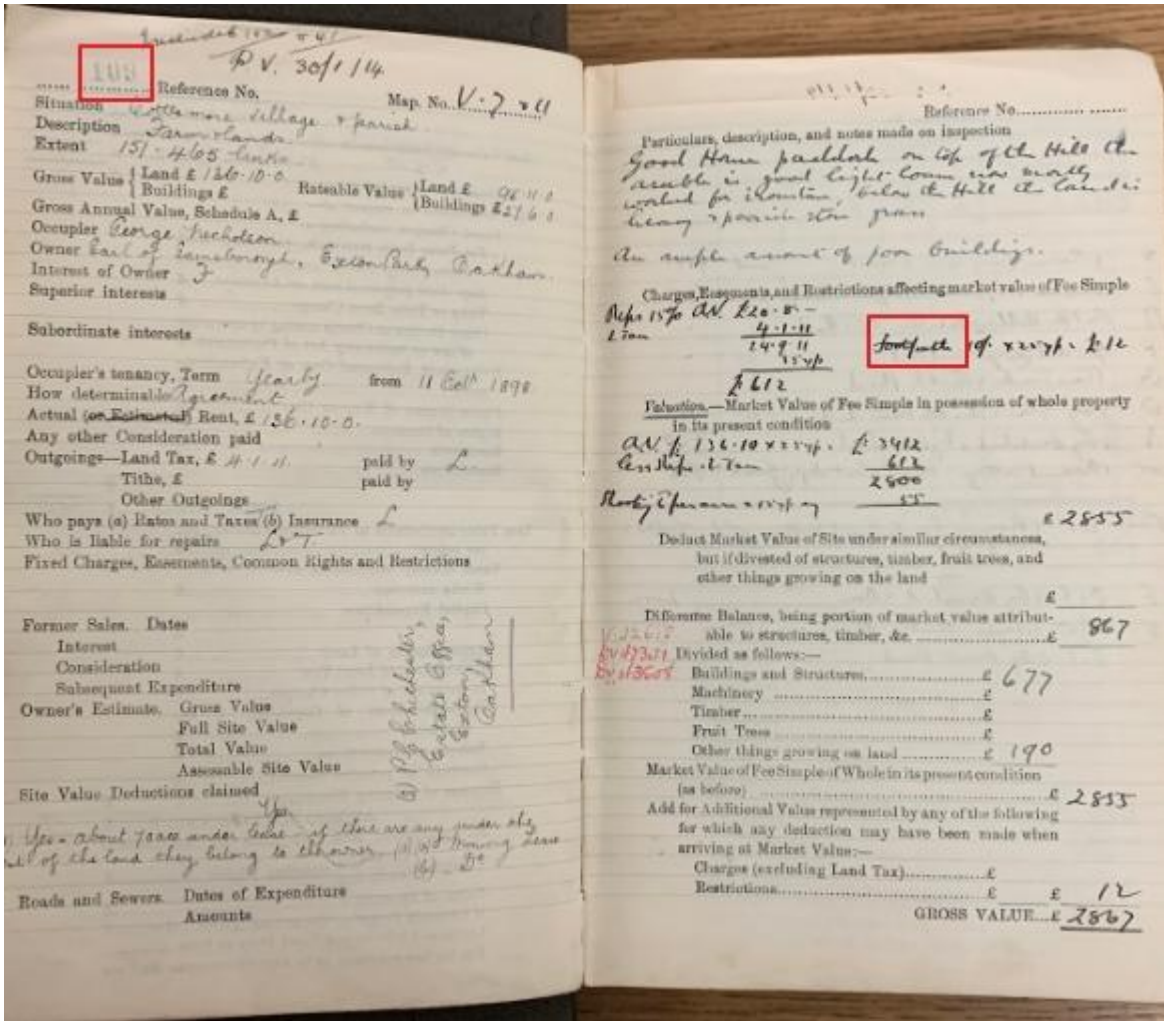 P.V. 30/1/14
109 Reference No. Map. No. V.7 & 11
Situation Cottesmore Village & parish
Description Farm & lands
Extent 151.465
Gross Value { Land £ 136-10-0 Rateable Value { Land £ 96 11 0
{ Buildings £ { Buildings £ 27 6 0
Gross Annual Value, Schedule A, £
Occupier George Nicholson
Owner Earl of Gainsborough, Exton Park, Oakham
Interest of Owner F
Superior interests
Subordinate interests
Occupier's tenancy, Term Yearly from 11 Oct 1898
How determinable Agreement
Actual (or Estimated) Rent, £ 136.10.0.
Any other Consideration paid
Outgoings—Land Tax, £ 4.1.11. paid by L
Tithe, £ paid by
Other Outgoings
Who pays (a) Rates and Taxes (b) Insurance L
Who is liable for repairs L & T
Fixed Charges, Easements, Common Rights and Restrictions
Former Sales. Dates
Interest
Consideration
Subsequent Expenditure
Owner's Estimate. Gross Value
Full Site Value
Total Value
Assessable Site Value
Estate Office,
Exton,
Oakham
Site Value Deductions claimed
Yes
Yes - about under lease if there are any under the
of the land they belong to the owner
Roads and Sewers. Dates of Expenditure
Amounts
Reference No.
Particulars, description, and notes made on inspection
Good Home paddock on top of the Hill the
arable is good light loam now mostly
worked for ironstone, below the Hill the land is
heavy & grass
An ample amount of poor buildings.
Charges, Easements, and Restrictions affecting market value of Fee Simple
Reps 15% on £20.8.-
L Tax 4.1.11
24.9.11
25yp
£612
footpath 10/- x 25 yp = £12
Valuation.—Market Value of Fee Simple in possession of whole property
in its present condition
A.V. £136.10 x 25yp. £3412
less Reps & L Tax 612
2800
55
£2855
Deduct Market Value of Site under similar circumstances,
but if divested of structures, timber, fruit trees, and
other things growing on the land
£
Difference Balance, being portion of market value attribut-
able to structures, timber, &c. £ 867
Divided as follows:—
Buildings and Structures £ 677
Machinery £
Timber £
Fruit Trees £
Other things growing on land £ 190
Market Value of Fee Simple of Whole in its present condition
(as before) £ 2855
Add for Additional Value represented by any of the following
for which any deduction may have been made when
arriving at Market Value:—
Charges (excluding Land Tax) £
Restrictions £ £ 12
GROSS VALUE...£ 2867